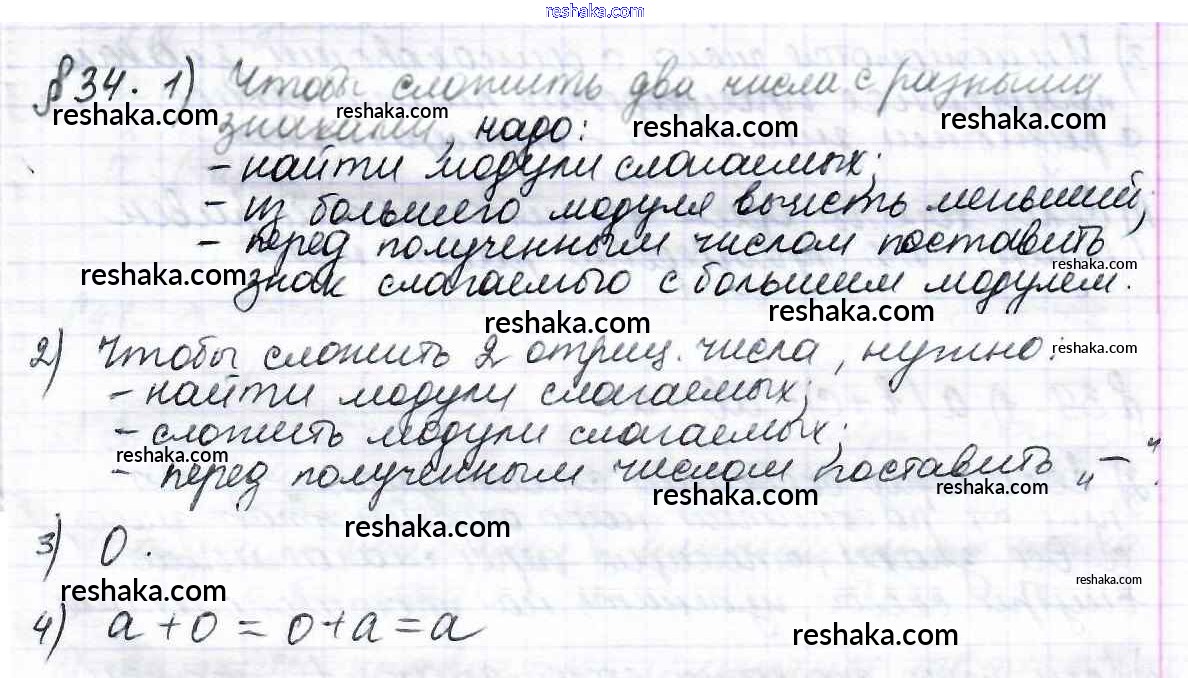 reshaka.com
§34. 1) Чтобы сложить два числа с разными
reshaka.com reshaka.com reshaka.com reshaka.com
знаками, надо:
- найти модули слагаемых;
- из большего модуля вычесть меньший;
- перед полученным числом поставить
reshaka.com reshaka.com
знак слагаемого с большим модулем.
reshaka.com reshaka.com
2) Чтобы сложить 2 отриц. числа, нужно:
reshaka.com
- найти модули слагаемых;
- сложить модули слагаемых;
reshaka.com
- перед полученным числом поставить „—“.
reshaka.com reshaka.com
reshaka.com
3) 0.
reshaka.com reshaka.com
4) a + 0 = 0 + a = a
reshaka.com